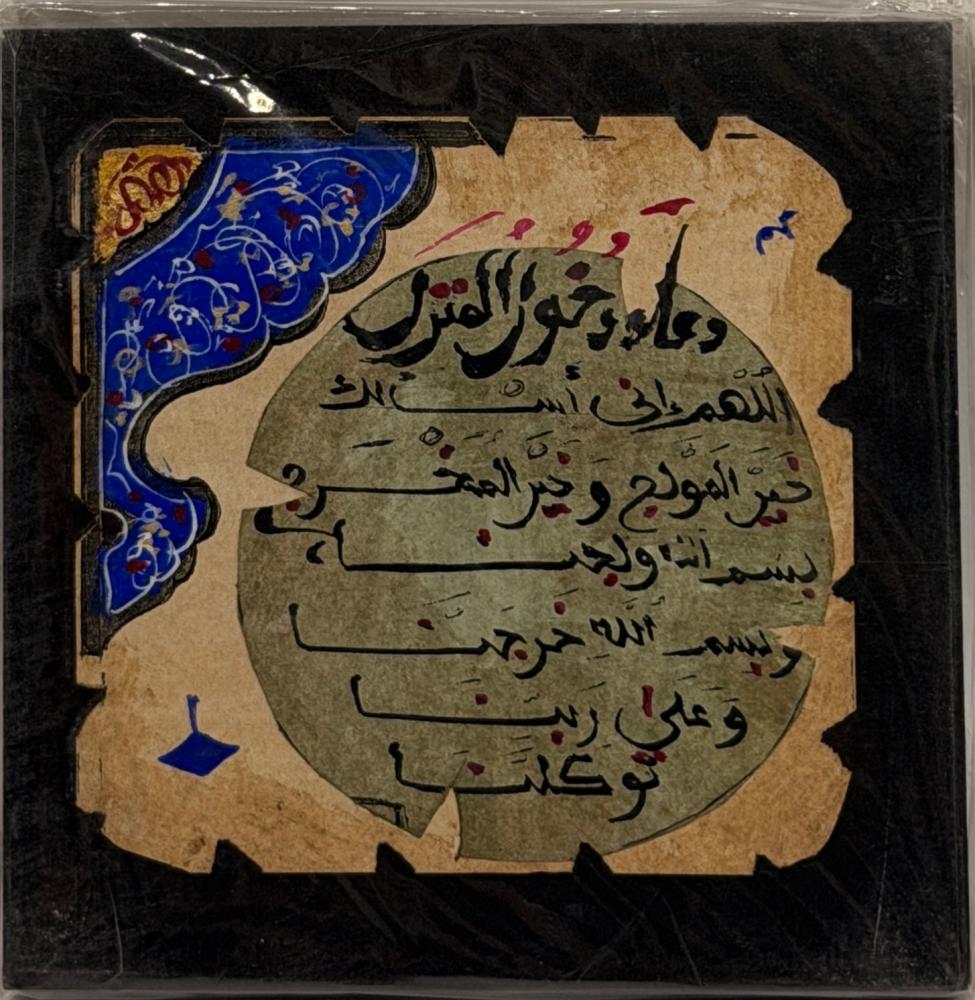 دعاء دخول المنزل
اللهم إني أسألك
خير المولج و خير المخرج
بسم الله ولجنا
وبسم الله خرجنا
وعلى ربنا
توكلنا